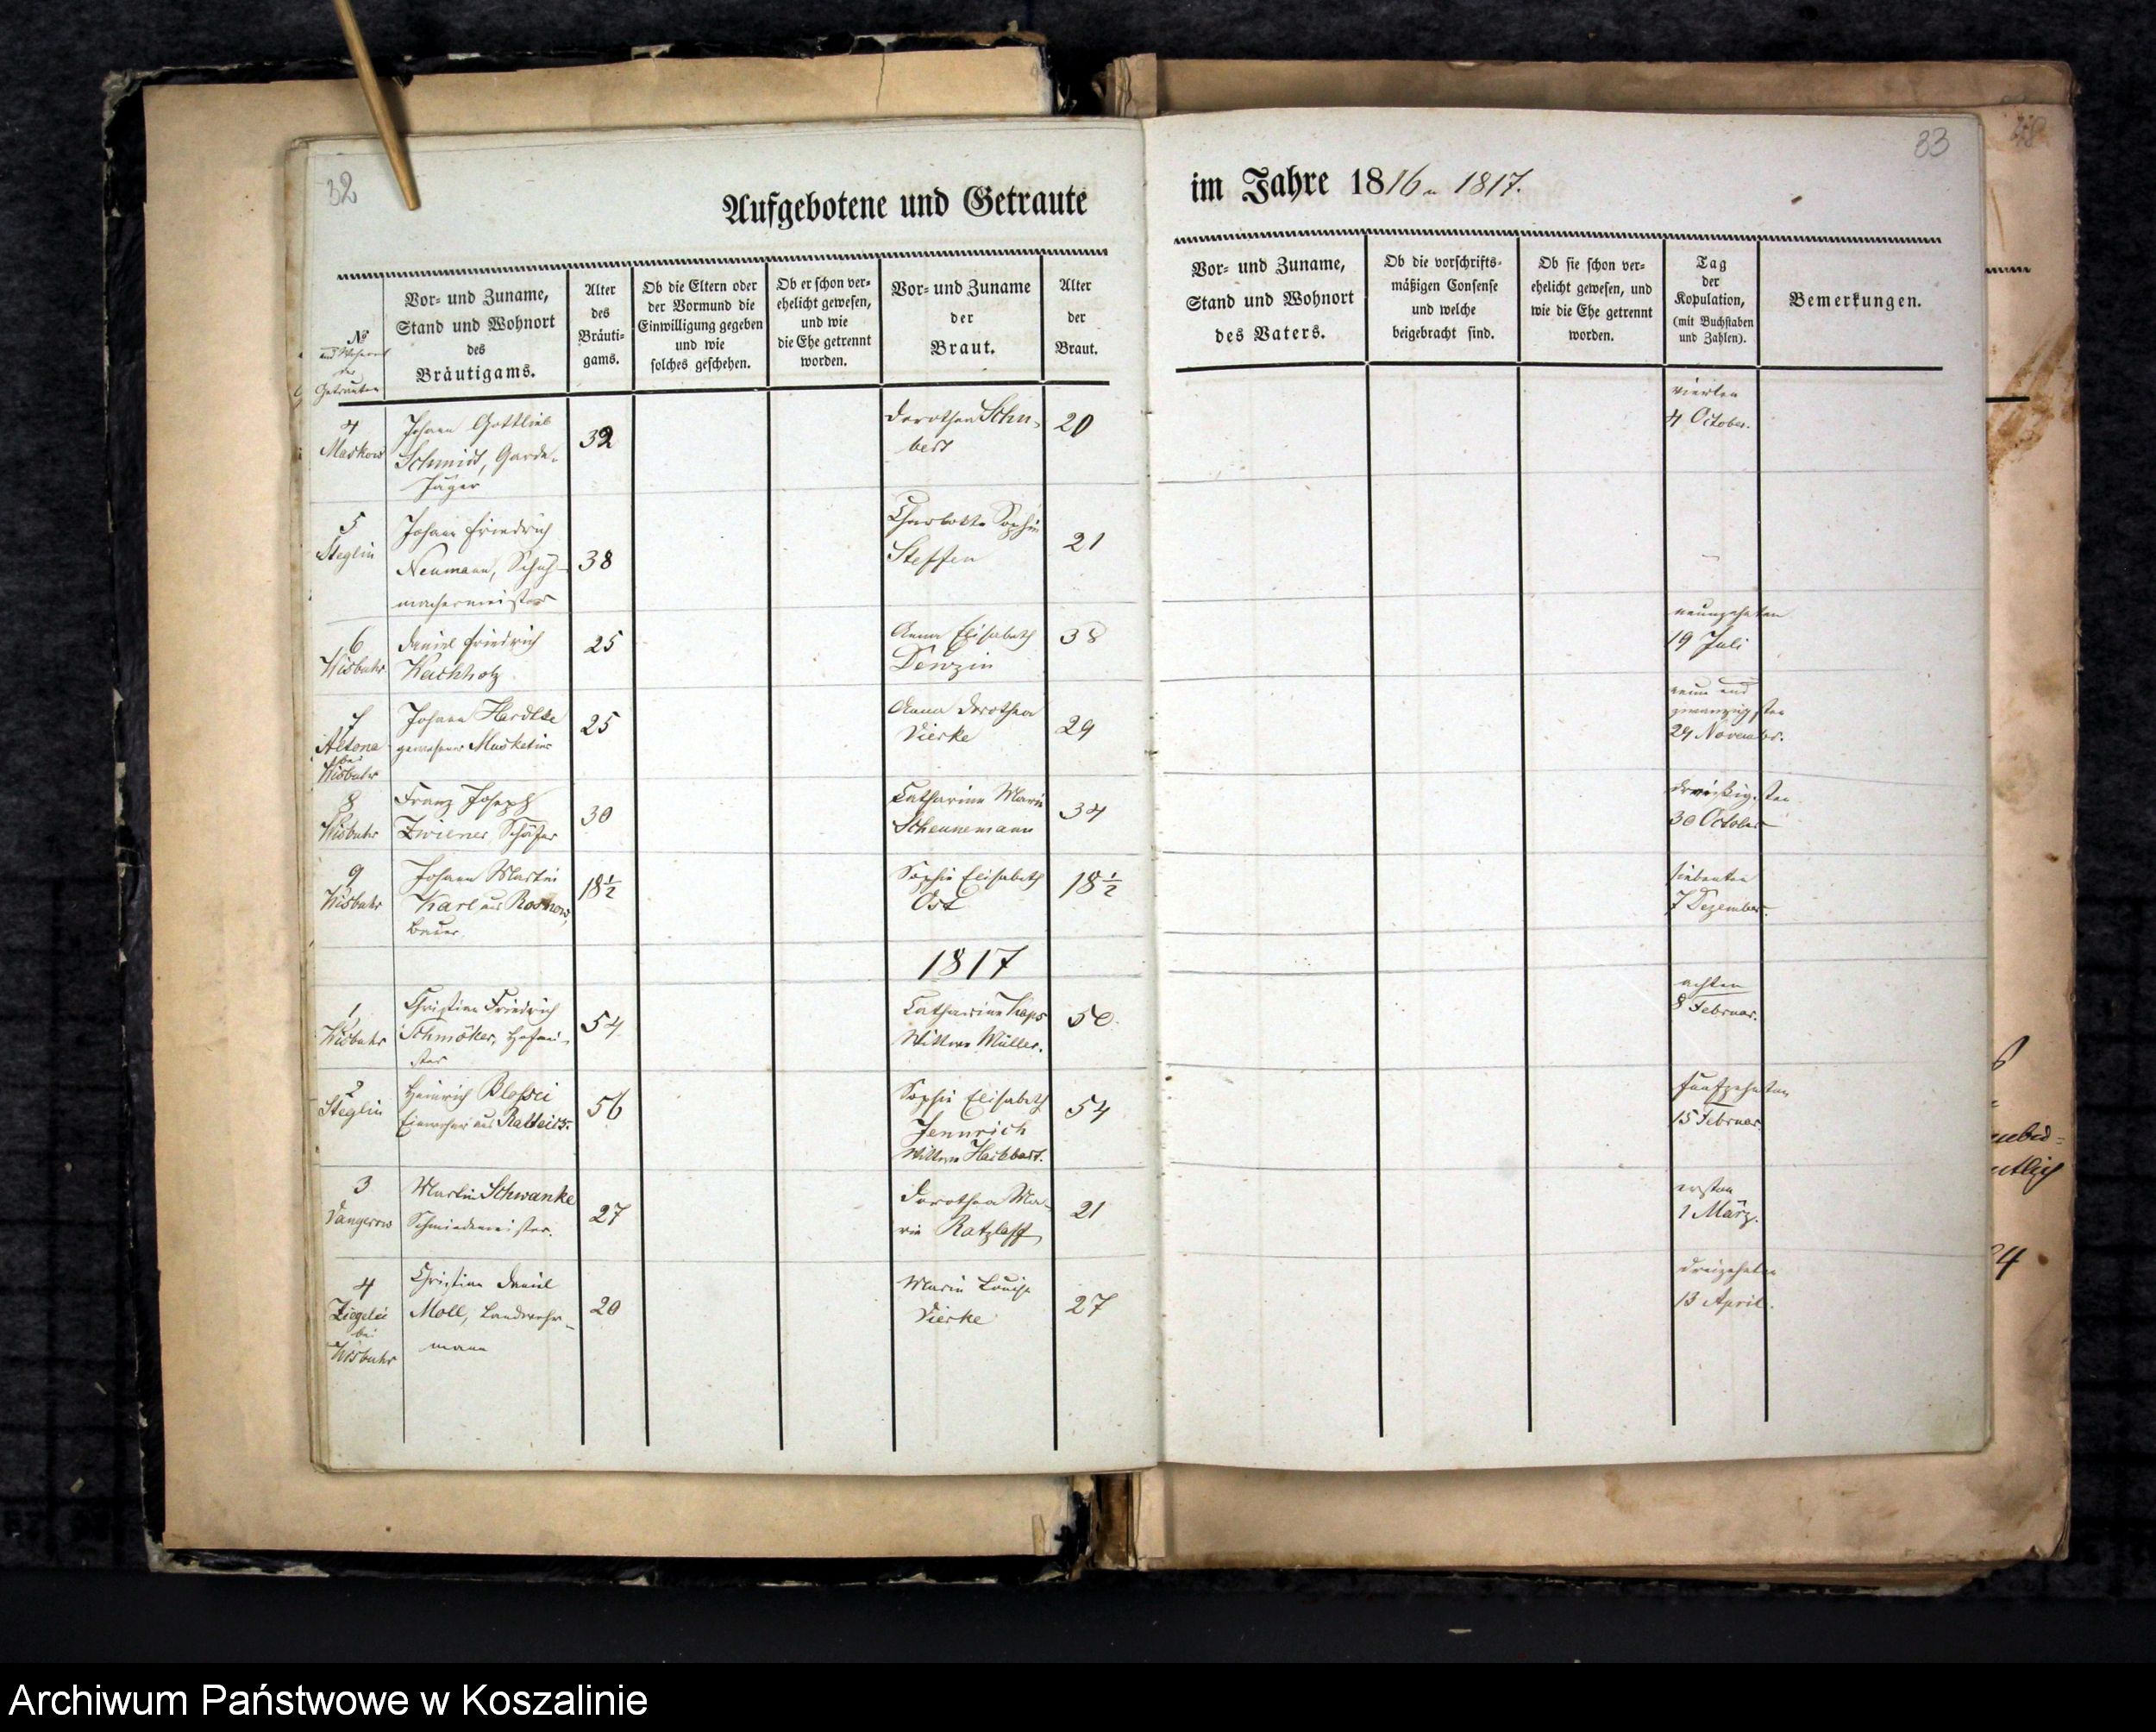 32
33
Aufgebotene und Getraute
im Jahre 1816 u 1817.
№
und Wohnort
der
Getrauten
Vor- und Zuname,
Stand und Wohnort
des
Bräutigams.
Alter
des
Bräuti-
gams.
Ob die Eltern oder
der Vormund die
Einwilligung gegeben
und wie
solches geschehen.
Ob er schon ver-
ehelicht gewesen,
und wie
die Ehe getrennt
worden.
Vor- und Zuname
der
Braut.
Alter
der
Braut.
Vor- und Zuname,
Stand und Wohnort
des Vaters.
Ob die vorschrifts-
mäßigen Consense
und welche
beigebracht sind.
Ob sie schon ver-
ehelicht gewesen, und
wie die Ehe getrennt
worden.
Tag
der
Kopulation,
(mit Buchstaben
und Zahlen).
Bemerkungen.
4
Maskow
Johann Gottlieb
Schmidt, Garde-
Jäger
32
Dorothea Schu-
bert
20
vierten
4 October.
5
Steglin
Johann Friedrich
Neumann, Schuh-
machermeister
38
Charlotte Sophie
Steffen
21
–
6
Wisbuhr
Daniel Friedrich
Kachholz
25
Anna Elisabeth
Denzin
38
neunzehnten
19 Juli
7
Altona
bei
Wisbuhr
Johann Hardtke
gewesener Musketier
25
Anna Dorothea
Vierke
29
neun und
zwanzigsten
29 Novembr.
8
Wisbuhr
Franz Joseph
Zwiener Schäfer
30
Catharine Marie
Scheunemann
34
dreißigsten
30 October
9
Wisbuhr
Johann Martin
Karl aus Rosnow,
Bauer.
18½
Sophie Elisabeth
Ost
18½
siebenten
7 Dezember.
1817
1
Wisbuhr
Christian Friedrich
Schmöker, Hofmei-
ster
54
Catharine Haps
Wittwe Müller.
50.
achten
8 Februar.
2
Steglin
Heinrich Blessei
Einwohner aus Ratteick.
56
Sophie Elisabeth
Jennrich
Wittwe Harbbart.
54
funfzehnten
15 Februar.
3
Vangerow
Martin Schwanke
Schmiedemeister.
27
Dorothea Ma-
rie Ratzlaff
21
ersten
1 März.
4
Ziegelei
bei
Wisbuhr
Christian Daniel
Moll, Landwehr-
mann
20
Marie Louise
Vierke
27
dreizehnten
13 April.
Archiwum Państwowe w Koszalinie